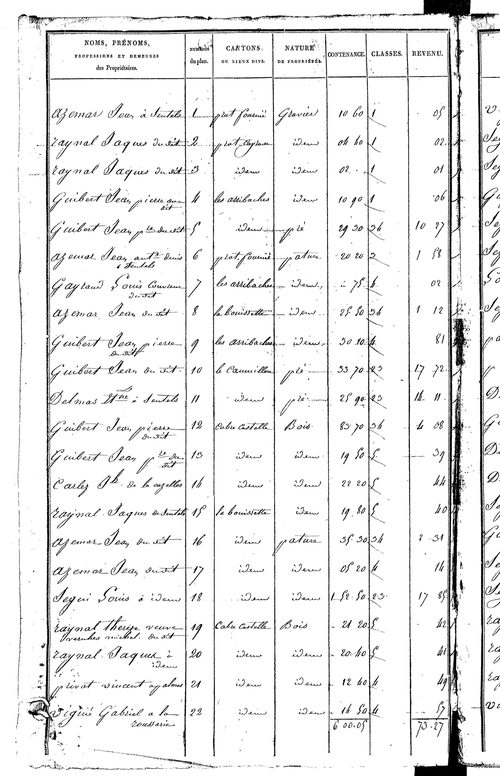 NOMS, PRÉNOMS, PROFESSIONS ET DEMEURES des Propriétaires. NUMÉROS du plan. CANTONS OU LIEUX DITS. NATURE DE PROPRIÉTÉS. CONTENANCE. CLASSES. REVENU.
azemar Jean à Sentels 1 prat fournié Gravier 10 60 1 05
raynal Jaques du dit 2 prat idem 04 40 1 02
raynal Jaques du dit 3 idem idem 02 1 01
Guibert Jean pierre 4 les arribaches idem 10 90 1 06
Guibert Jean pre du dit 5 idem pré 29 30 34 10 27
azemar Jean 6 prat fournié pature 20 20 3 1 58
à Sentels
Gayraud Louis 7 les arribaches idem 75 4 02
du dit
azemar Jean du dit 8 la bouissette idem 25 50 34 1 12
Guibert Jean pierre 9 les arribaches idem 30 10 4 81
du dit
Guibert Jean du dit 10 pré 33 70 23 17 72
Delmas à Sentels 11 idem pré 25 90 23 14 11
Guibert Jean pierre 12 Cabu Castelle Bois 83 70 34 4 08
du dit
Guibert Jean pre du 13 idem idem 19 50 5 39
dit
Carlez de la 14 idem idem 22 20 5 44
raynal Jaques de Sentels 15 la bouissette idem 19 80 5 40
azemar Jean du dit 16 idem pature 35 30 34 2 31
azemar Jean du dit 17 idem idem 05 20 4 14
Segui Louis à idem 18 idem idem 1 52 50 23 17 85
raynal therese veuve 19 Cabu Castelle Bois 21 20 5 42
michel du dit
raynal Jaques à 20 idem idem 20 40 5 41
idem
privat vincent 21 idem idem 12 40 4 49
vigué Gabriel à la 22 idem idem 14 50 4 57
roussarie
6 00.05 73.27